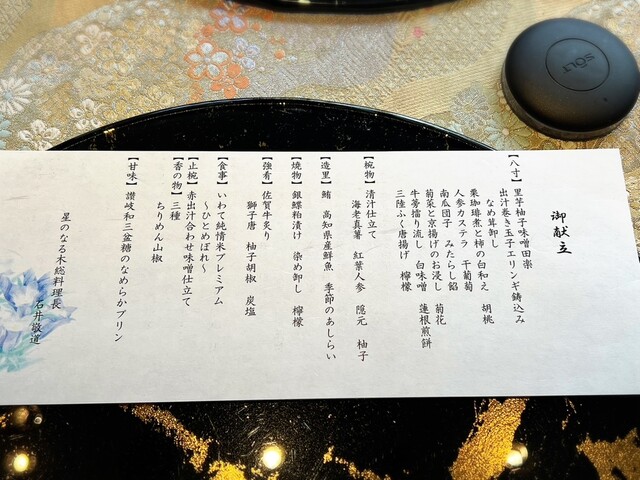 御献立
【八寸】里芋柚子味噌田楽
出汁巻き玉子エリンギ鋳込み
なめ茸卸し
栗珈琲煮と柿の白和え 胡桃
人参カステラ 干葡萄
南瓜団子 みたらし餡
菊菜と京揚げのお浸し 菊花
牛蒡擂り流し 白味噌 蓮根煎餅
三陸ふぐ唐揚げ 檸檬
【椀物】清汁仕立て
海老真薯 紅葉人参 隠元 柚子
【造里】鮪 高知県産鮮魚 季節のあしらい
【焼物】銀鰈粕漬け 染め卸し 檸檬
【強肴】佐賀牛炙り
獅子唐 柚子胡椒 炭塩
【食事】いわて純情米プレミアム
～ひとめぼれ～
【止椀】赤出汁合わせ味噌仕立て
【香の物】三種
ちりめん山椒
【甘味】讃岐和三盆糖のなめらかプリン
星のなる木総料理長
石井敬道
SOLT